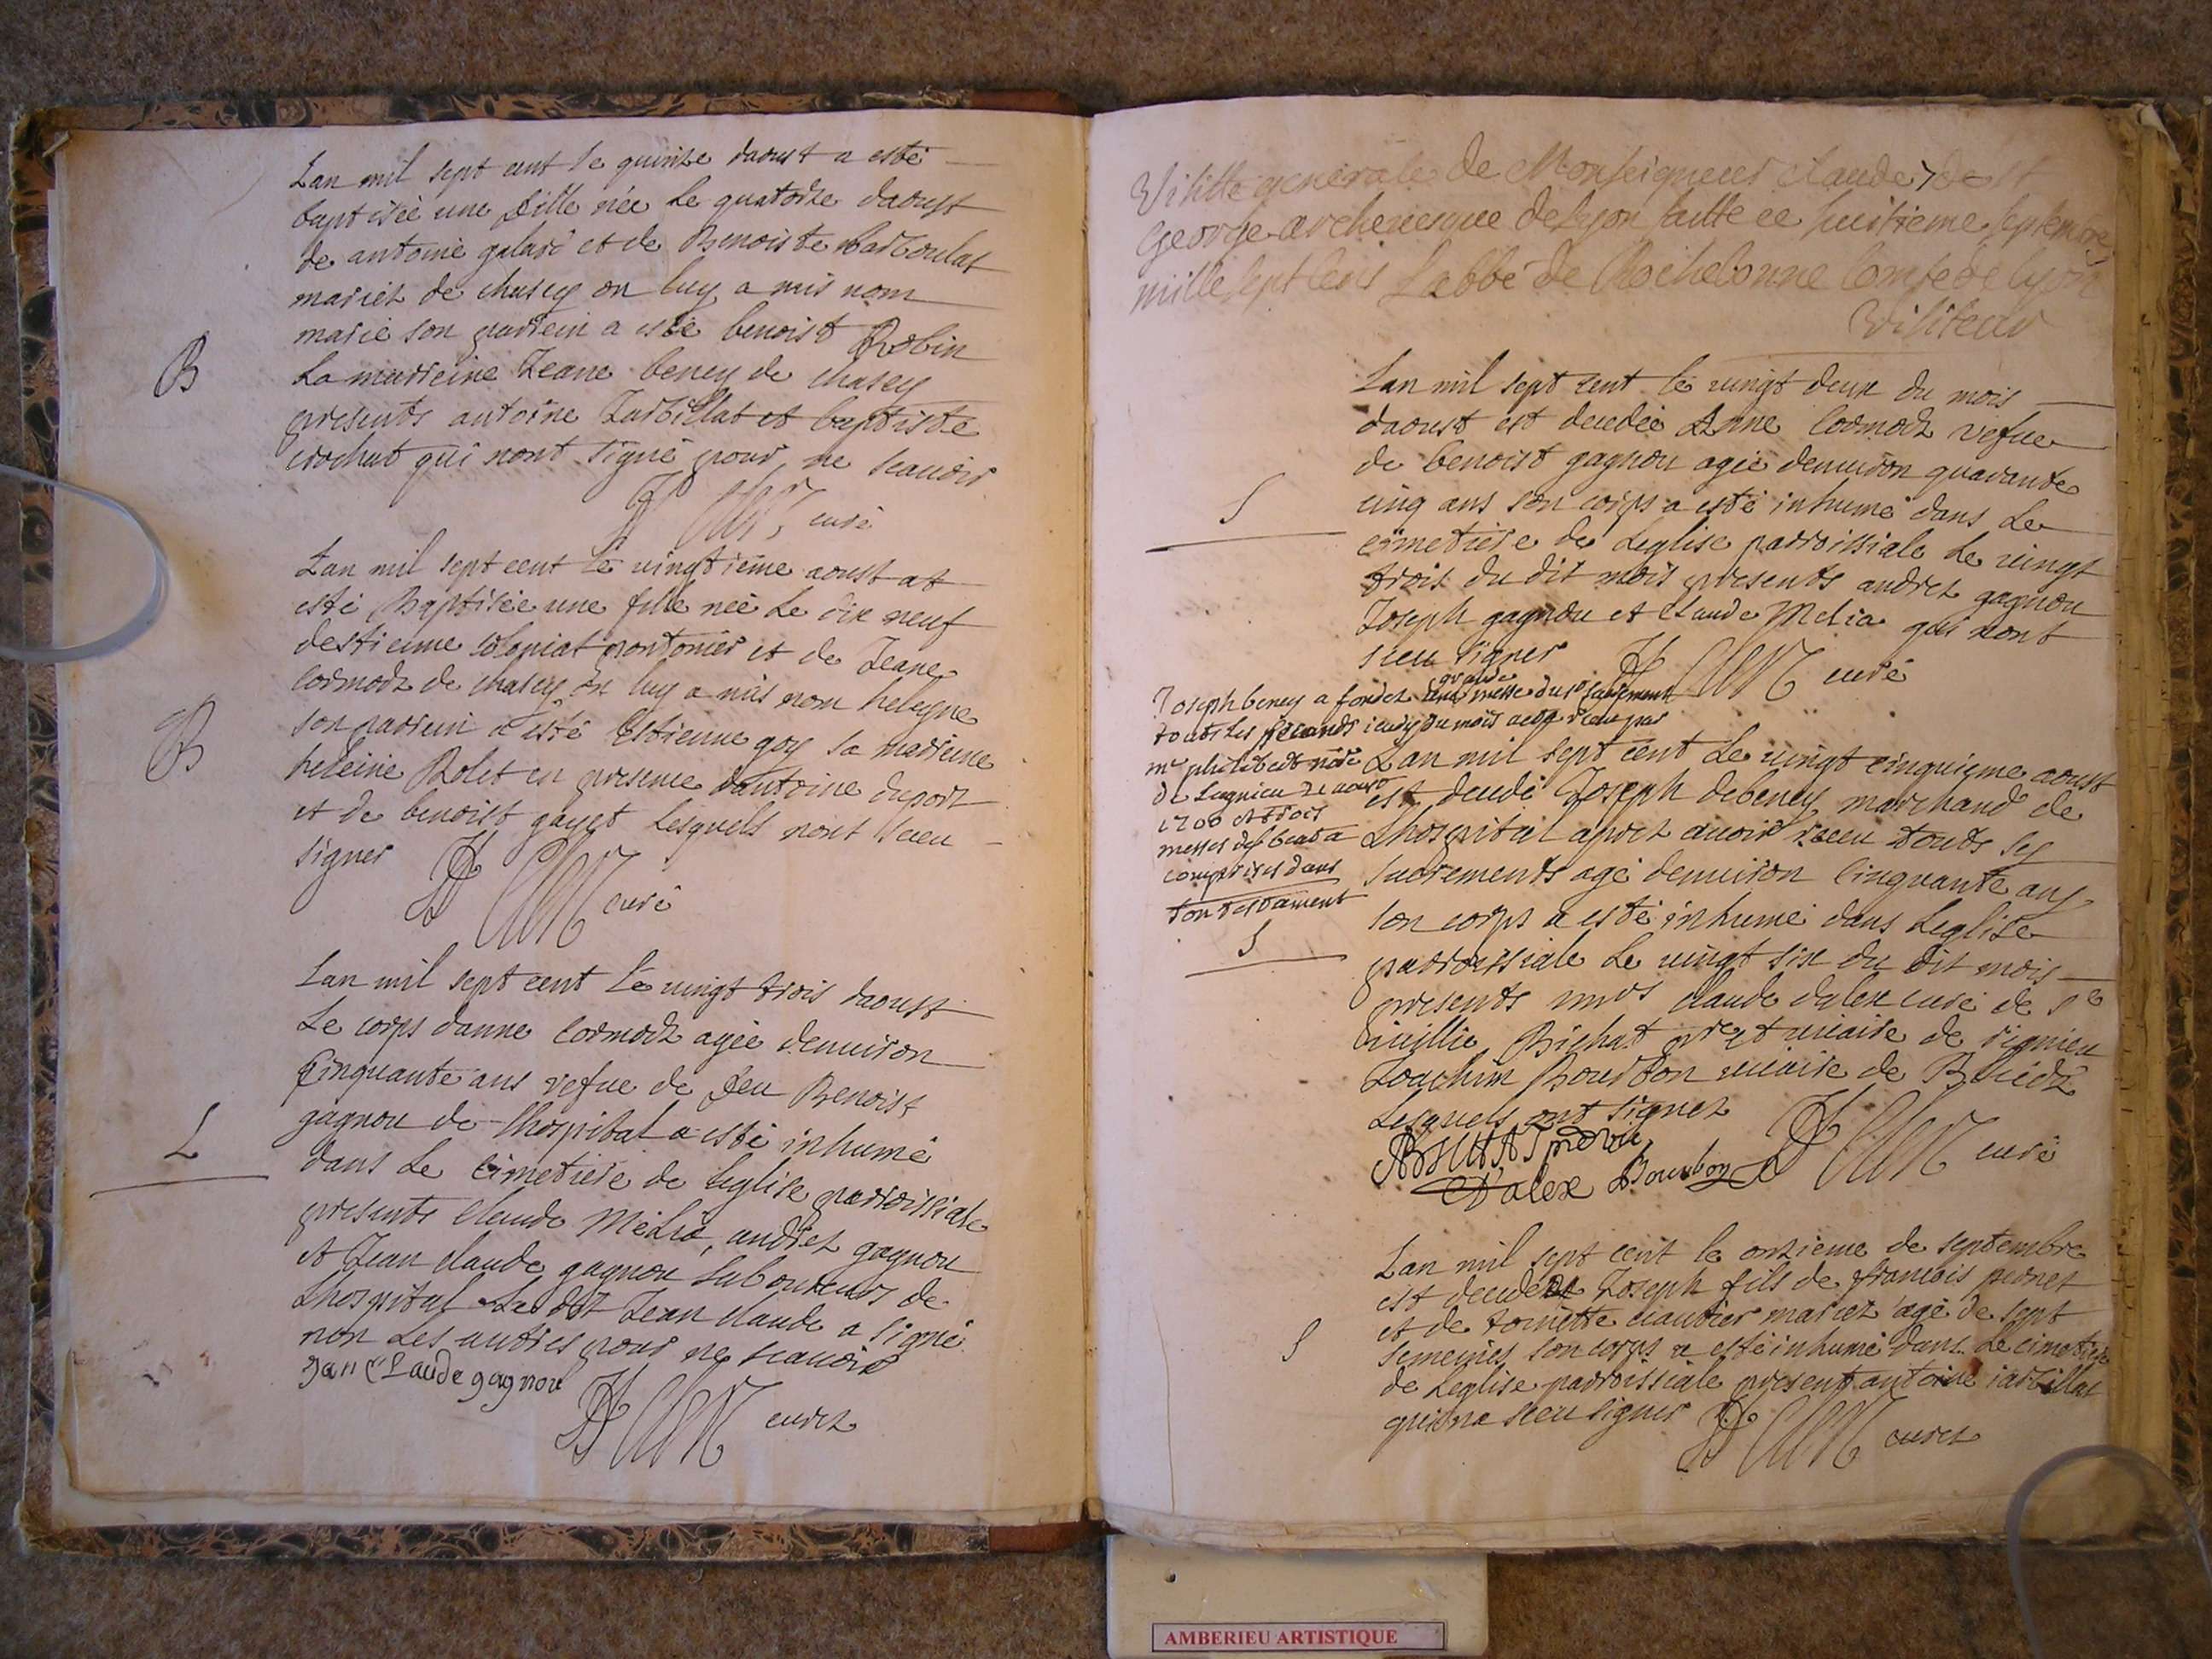 Lan mil sept cent le quinze daoust a esté
baptisée une fille née le quatorze daoust
de antoine galari et de Benoiste Barboulat
mariez de chasey on luy a mis nom
marie son parrein a esté benoist Robin
La marreine Jeane beney de chasey
presents antoine Jarbillat et baptiste
crochat qui nont signé pour ne scauoir
curé
B
Lan mil sept cent le uingtieme aoust at
esté Baptisée une fille née le dix neuf
destienne coloniat pontonier et de Jeane
Cormodz de chasey on luy a mis nom heleyne
son parrein a esté Estienne goy sa marreine
heleine Rolet en presence dantoine duport
et de benoist gayet Lesquels nont sceu
signer
curé
B
Lan mil sept cent le uingt trois daoust
Le corps danne Cormodz agée denuiron
Cinquante ans vefue de feu Benoist
gagnon de Lhospital a esté inhumé
dans le cimetiere de Leglise parroissiale
presents Claude Melia, andrez gagnon
et Jean claude gagnon laboureurs de
Lhospital Le dit Jean claude a signé
non Les autres pour ne scauoir
Jan Claude gagnon
curez
Visitte generale de Monseigneur claude de St
George archeuesque de Lyon faitte ce huitieme septembre
mille sept cens Labbé de Rochebonne Comte de Lyon
Visiteur
Lan mil sept cent le uingt deux du mois
daoust est decedée Anne Cormodz vefue
de benoist gagnon agée denuiron quarante
cinq ans son corps a esté inhumé dans Le
cimetiere de Leglise parroissiale Le uingt
trois du dit mois presents andrez gagnon
Joseph gagnon et Claude Melia qui nont
sceu signer
curé
S
Joseph beney a fondez une grande messe du St sacrement
touts Les seconds ieudy du mois
me philibert nore
de Lagnieu
1700 et trois
messes
comprises dans
son testament
S
Lan mil sept cent Le uingt cinquieme aoust
est decedé Joseph debeney marchand de
Lhospital aprez auoir receu touts ses
sacrements agé denuiron Cinquante ans
son corps a esté inhumé dans Leglise
parroissiale Le uingt six du dit mois
presents mrs claude dalex curé de Ste
iuillie Bichat pret uicaire de rignieu
Joachim Bourbon uicaire de
Lesquels ont signez
Dalex Bourbon
curé
Lan mil sept cent le onzieme de septembre
est decedé Joseph fils de francois pernet
et de toinette mariez agé de sept
semeines son corps a esté inhumé dans Le cimetiere
de Leglise parroissiale present antoine iarbillat
qui na sceu signer
curez
S
AMBERIEU ARTISTIQUE